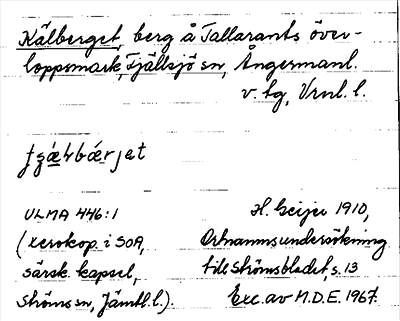 Kälberget, berg å Tallarants över-
loppsmark, Fjällsjö sn, Ångermanl.
v. tg, Vrnl. l.
bǽrjet
ULMA 446:1
(xerokop. i SOA,
särsk. kapsel,
Ströms sn, Jämtl. l.).
H. Geijer 1910,
Ortnamnsundersökning
till Strömsbladet, s. 13
Exc. av M.D.E. 1967.